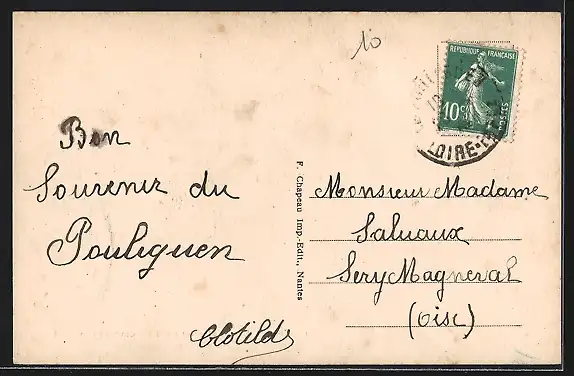 10
RÉPUBLIQUE FRANÇAISE
10c
POSTES
LOIRE-
Bon
Souvenir du
Pouliguen
Clotilde
F. Chapeau Imp.-Edit., Nantes
Monsieur Madame
Saluaux
Sery Magneval
(Oise)